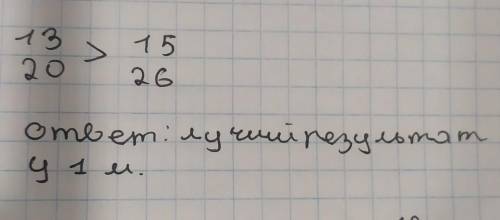 13 > 15
20 26
ответ: лучий результат
у 1 м.